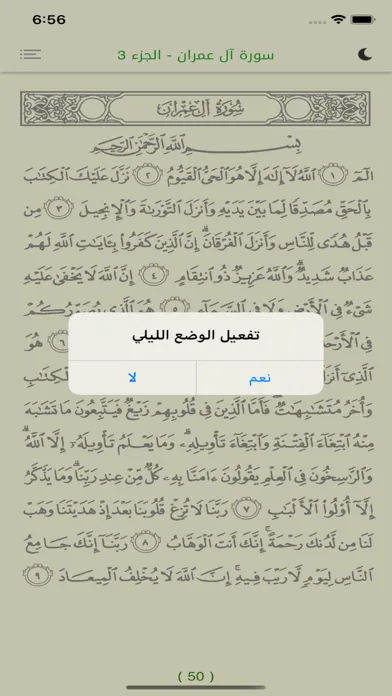 6:56
سورة آل عمران - الجزء 3
سُورَةُ آلِ عِمْرَانَ
بِسْمِ ٱللَّهِ ٱلرَّحْمَٰنِ ٱلرَّحِيمِ
الٓمٓ ١ ٱللَّهُ لَآ إِلَٰهَ إِلَّا هُوَ ٱلْحَىُّ ٱلْقَيُّومُ ٢ نَزَّلَ عَلَيْكَ ٱلْكِتَٰبَ
بِٱلْحَقِّ مُصَدِّقًا لِّمَا بَيْنَ يَدَيْهِ وَأَنزَلَ ٱلتَّوْرَىٰةَ وَٱلْإِنجِيلَ ٣ مِن
قَبْلُ هُدًى لِّلنَّاسِ وَأَنزَلَ ٱلْفُرْقَانَ ۗ إِنَّ ٱلَّذِينَ كَفَرُوا۟ بِـَٔايَٰتِ ٱللَّهِ لَهُمْ
عَذَابٌ شَدِيدٌ ۗ وَٱللَّهُ عَزِيزٌ ذُو ٱنتِقَامٍ ٤ إِنَّ ٱللَّهَ لَا يَخْفَىٰ عَلَيْهِ
شَىْءٌ فِى ٱلْأَرْضِ وَلَا فِى ٱلسَّمَآءِ ٥ هُوَ ٱلَّذِى يُصَوِّرُكُمْ
فِى ٦ هُوَ
تفعيل الوضع الليلي
ٱلَّذِىٓ ٱلْكِتَٰبِ
نعم
لا
وَأُخَرُ مُتَشَٰبِهَٰتٌ ۖ فَأَمَّا ٱلَّذِينَ فِى قُلُوبِهِمْ زَيْغٌ فَيَتَّبِعُونَ مَا تَشَٰبَهَ
مِنْهُ ٱبْتِغَآءَ ٱلْفِتْنَةِ وَٱبْتِغَآءَ تَأْوِيلِهِۦ ۗ وَمَا يَعْلَمُ تَأْوِيلَهُۥٓ إِلَّا ٱللَّهُ ۗ
وَٱلرَّٰسِخُونَ فِى ٱلْعِلْمِ يَقُولُونَ ءَامَنَّا بِهِۦ كُلٌّ مِّنْ عِندِ رَبِّنَا ۗ وَمَا يَذَّكَّرُ
إِلَّآ أُو۟لُوا۟ ٱلْأَلْبَٰبِ ٧ رَبَّنَا لَا تُزِغْ قُلُوبَنَا بَعْدَ إِذْ هَدَيْتَنَا وَهَبْ
لَنَا مِن لَّدُنكَ رَحْمَةً ۚ إِنَّكَ أَنتَ ٱلْوَهَّابُ ٨ رَبَّنَآ إِنَّكَ جَامِعُ
ٱلنَّاسِ لِيَوْمٍ لَّا رَيْبَ فِيهِ ۚ إِنَّ ٱللَّهَ لَا يُخْلِفُ ٱلْمِيعَادَ ٩
( 50 )